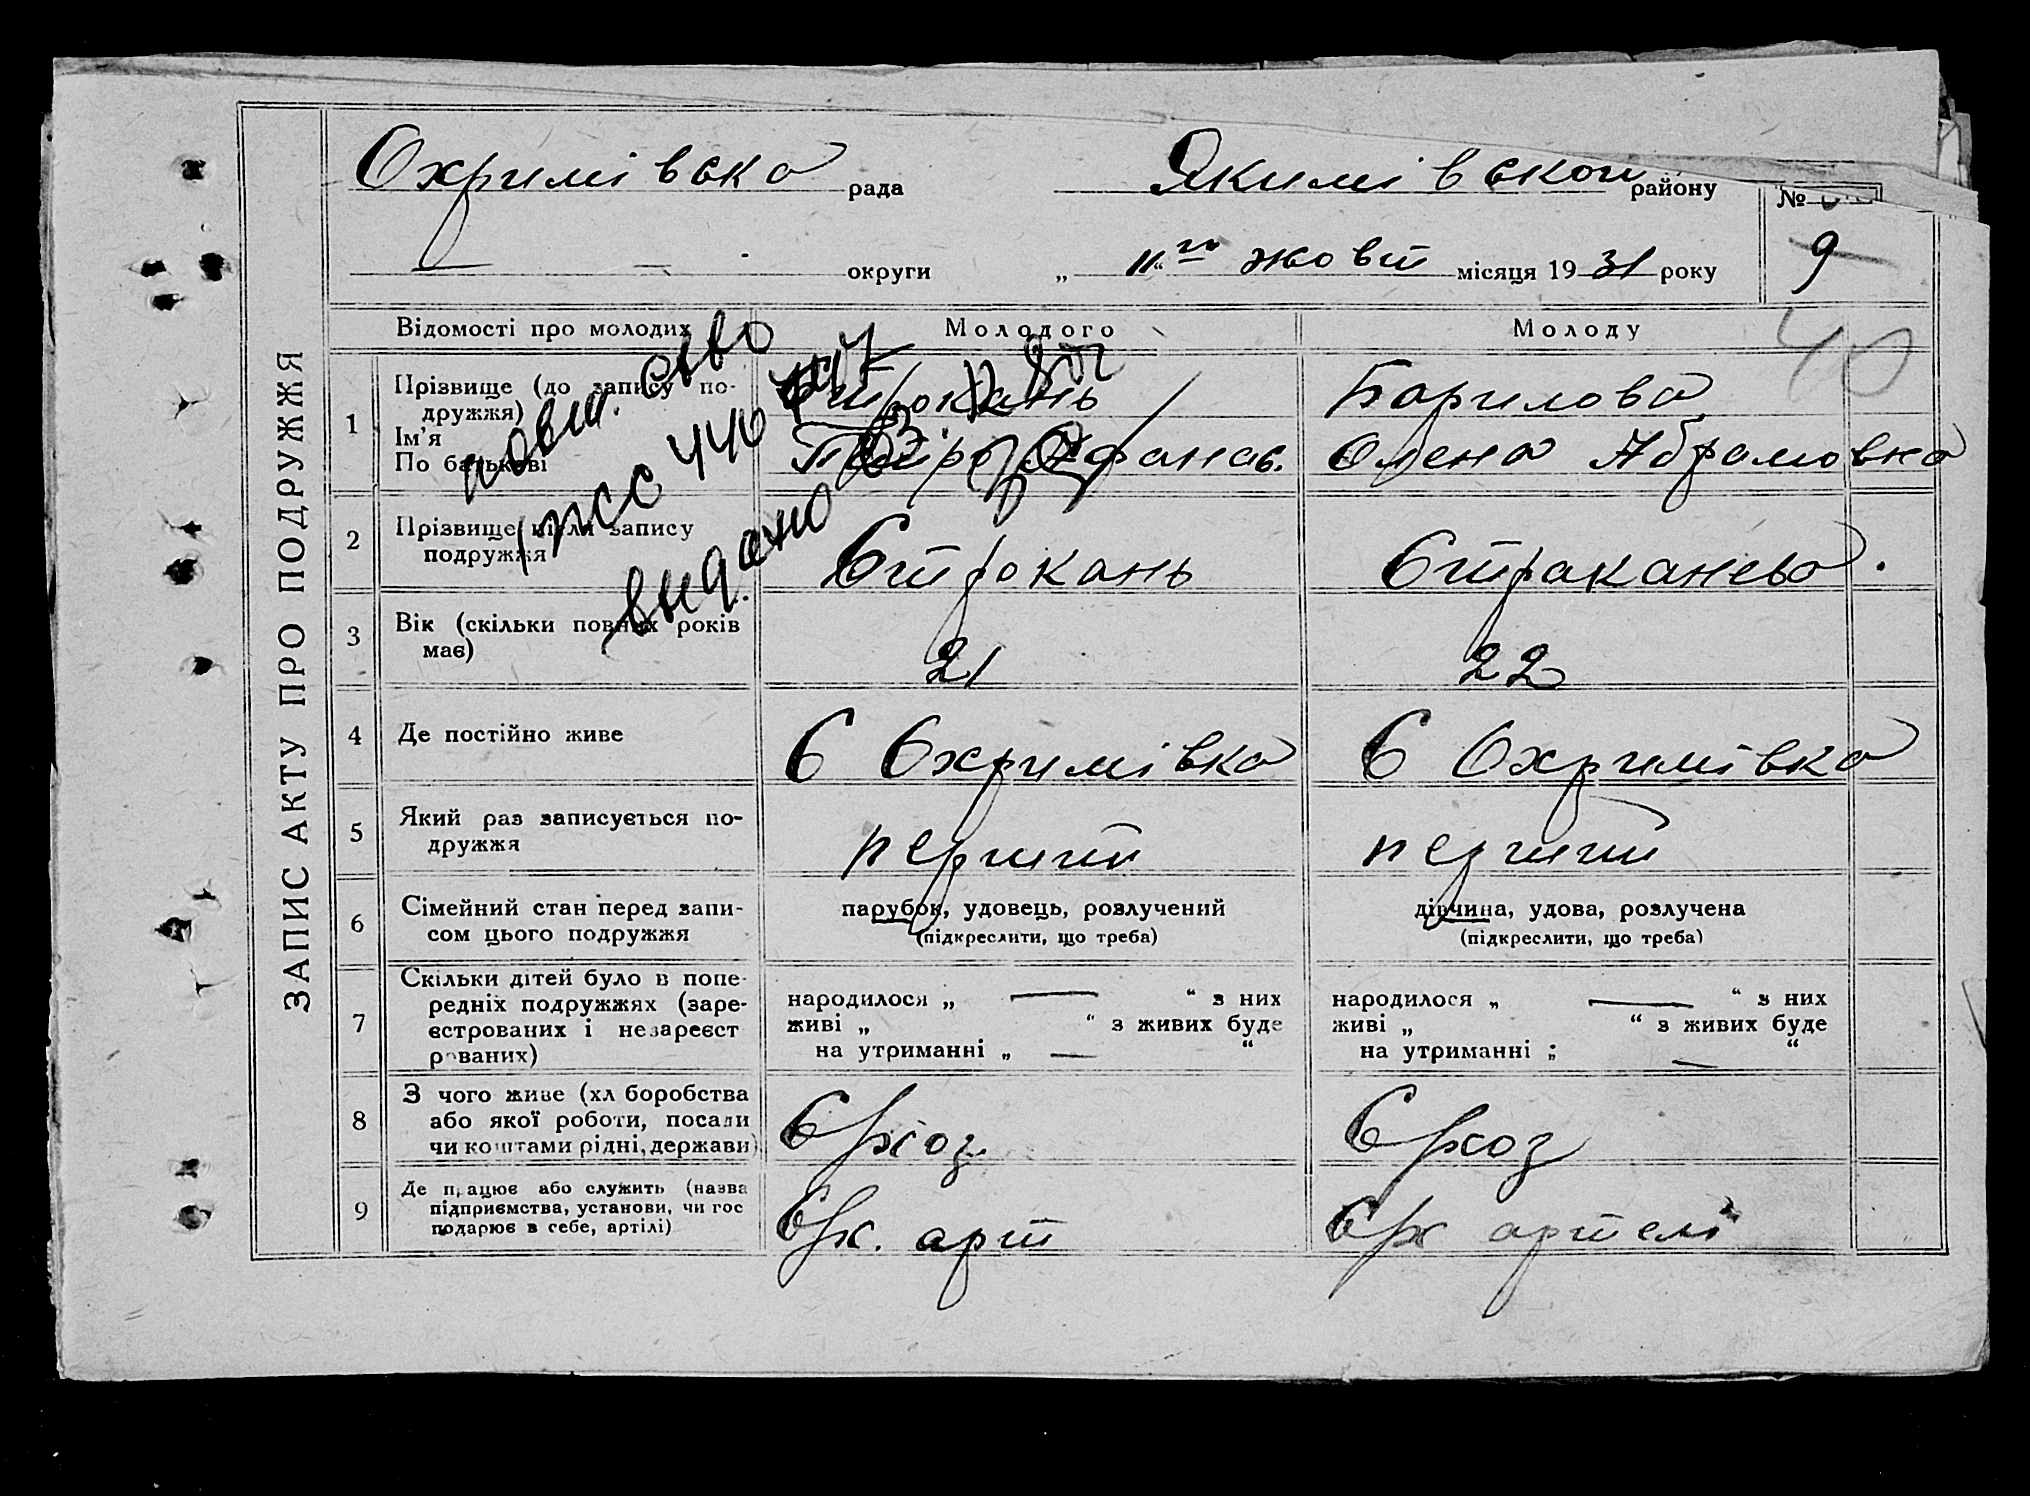 ЗАПИС АКТУ ПРО ПОДРУЖЖЯ
Охримівска рада Якимівскои району №
округи „ 11го “ жовт місяця 1931 року 9
Відомості про молодих Молодого Молоду 40
1 Прізвище (до запису по-
дружжя) Строкань Барилова
Ім'я
По батькові Петро Афанас. Олена Абрамовна
повт. св-во
видано
2 Прізвище після запису
подружжя Строкань Страканьо.
3 Вік (скільки повних років
має) 21 22
4 Де постійно живе С Охримівка С Охримівка
5 Який раз записується по-
дружжя перший перший
6 Сімейний стан перед запи-
сом цього подружжя
парубок, удовець, розлучений дівчина, удова, розлучена
(підкреслити, що треба) (підкреслити, що треба)
7 Скільки дітей було в попе-
редніх подружжях (заре-
єстрованих і незареєст
рованих)
народилося „ — “ з них народилося „ — “ з них
живі „ “ з живих буде живі „ “ з живих буде
на утриманні „ — “ на утриманні „ — “
8 З чого живе (хліборобства
або якої роботи, посади
чи коштами рідні, держави) Срхоз Срхоз
9 Де працює або служить (назва
підприємства, установи, чи гос
подарює в себе, артілі) Срх. арт Срх артелі